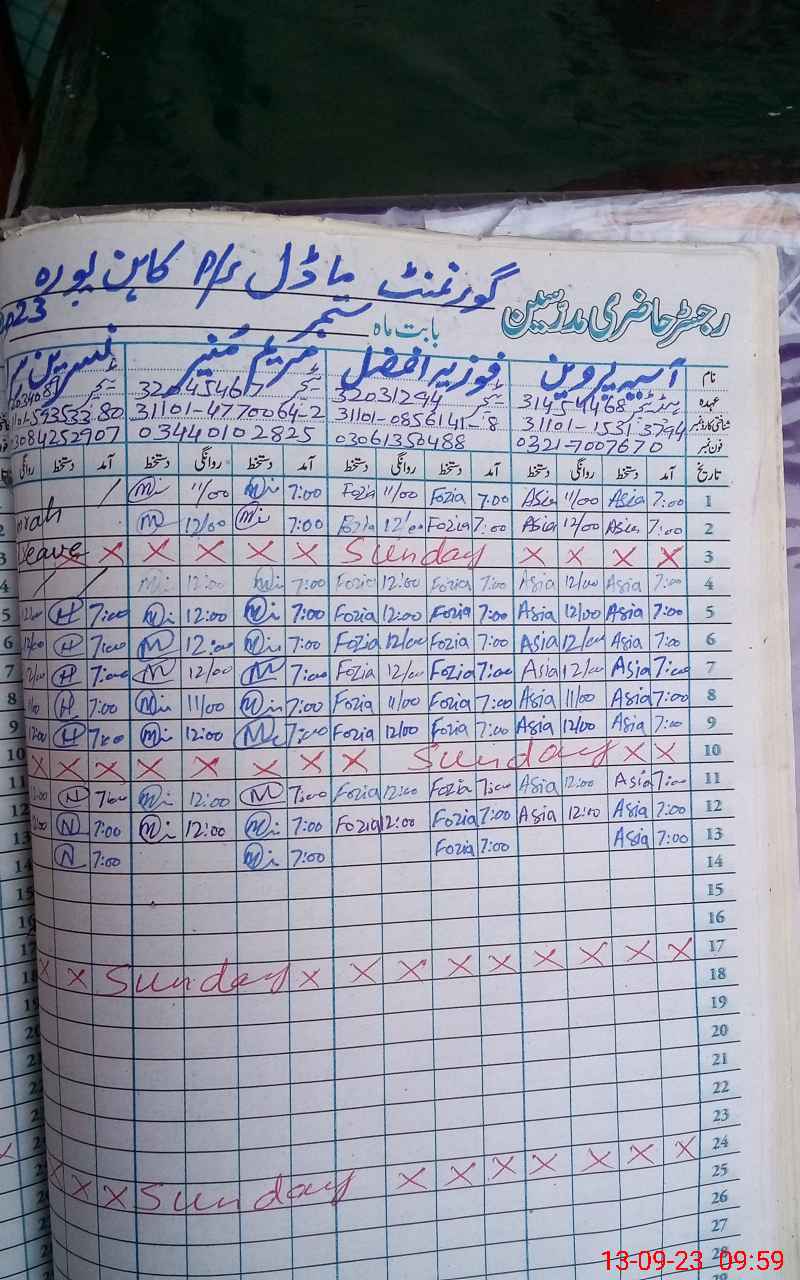 گورنمنٹ ماڈل p/s کاہن پورہ
رجسٹر حاضری مدرسین
بابت ماہ ستمبر p23
نام آسیہ پروین فوزیہ افضل مریم مُنیر نسرین
عہدہ 31454468 32031294 32045467
شناختی کارڈ نمبر 31101-1531 3794 31101-0856141-8 31101-4770064-2
فون نمبر 0321-7007670 03061350488 03440102825 3084252907
تاریخ آمد دستخط روانگی دستخط آمد دستخط روانگی دستخط آمد دستخط روانگی دستخط آمد دستخط روانگی
1 7:00 Asia 11/00 Asia 7:00 Fozia 11/00 Fozia 7:00 11/00
2 7:00 Asia 12/00 Asia 7:00 Fozia 12/00 Fozia 7:00 12/00
3 x x x x Sunday x x x x x x Leave
4 7:00 Asia 12/00 Asia 7:00 Fozia 12:00 Fozia 7:00 12:00
5 7:00 Asia 12/00 Asia 7:00 Fozia 12:00 Fozia 7:00 12:00 7:00 H 12/00
6 7:00 Asia 12/00 Asia 7:00 Fozia 12/00 Fozia 7:00 12:00 7:00 H 12/00
7 7:00 Asia 12/00 Asia 7:00 Fozia 12/00 Fozia 7:00 M 12/00 M 7:00 H 12/00
8 7:00 Asia 11/00 Asia 7:00 Fozia 11/00 Fozia 7:00 11/00 7:00 H
9 7:00 Asia 12/00 Asia 7:00 Fozia 12/00 Fozia 7:00 12:00 7:00 H 12:00
10 x x Sunday x x x x x x x x
11 7:00 Asia 12:00 Asia 7:00 Fozia 12:00 Fozia 7:00 M 12:00 7:00 N
12 7:00 Asia 12:00 Asia 7:00 Fozia 12:00 Fozia 7:00 12:00 7:00 N
13 7:00 Asia 7:00 Fozia 7:00 7:00 N
14
15
16
17 x x x x x x x x x Sunday x x
18
19
20
21
22
23
24 x x x x x x x x Sunday x x x
25
26
27
28
13-09-23 09:59